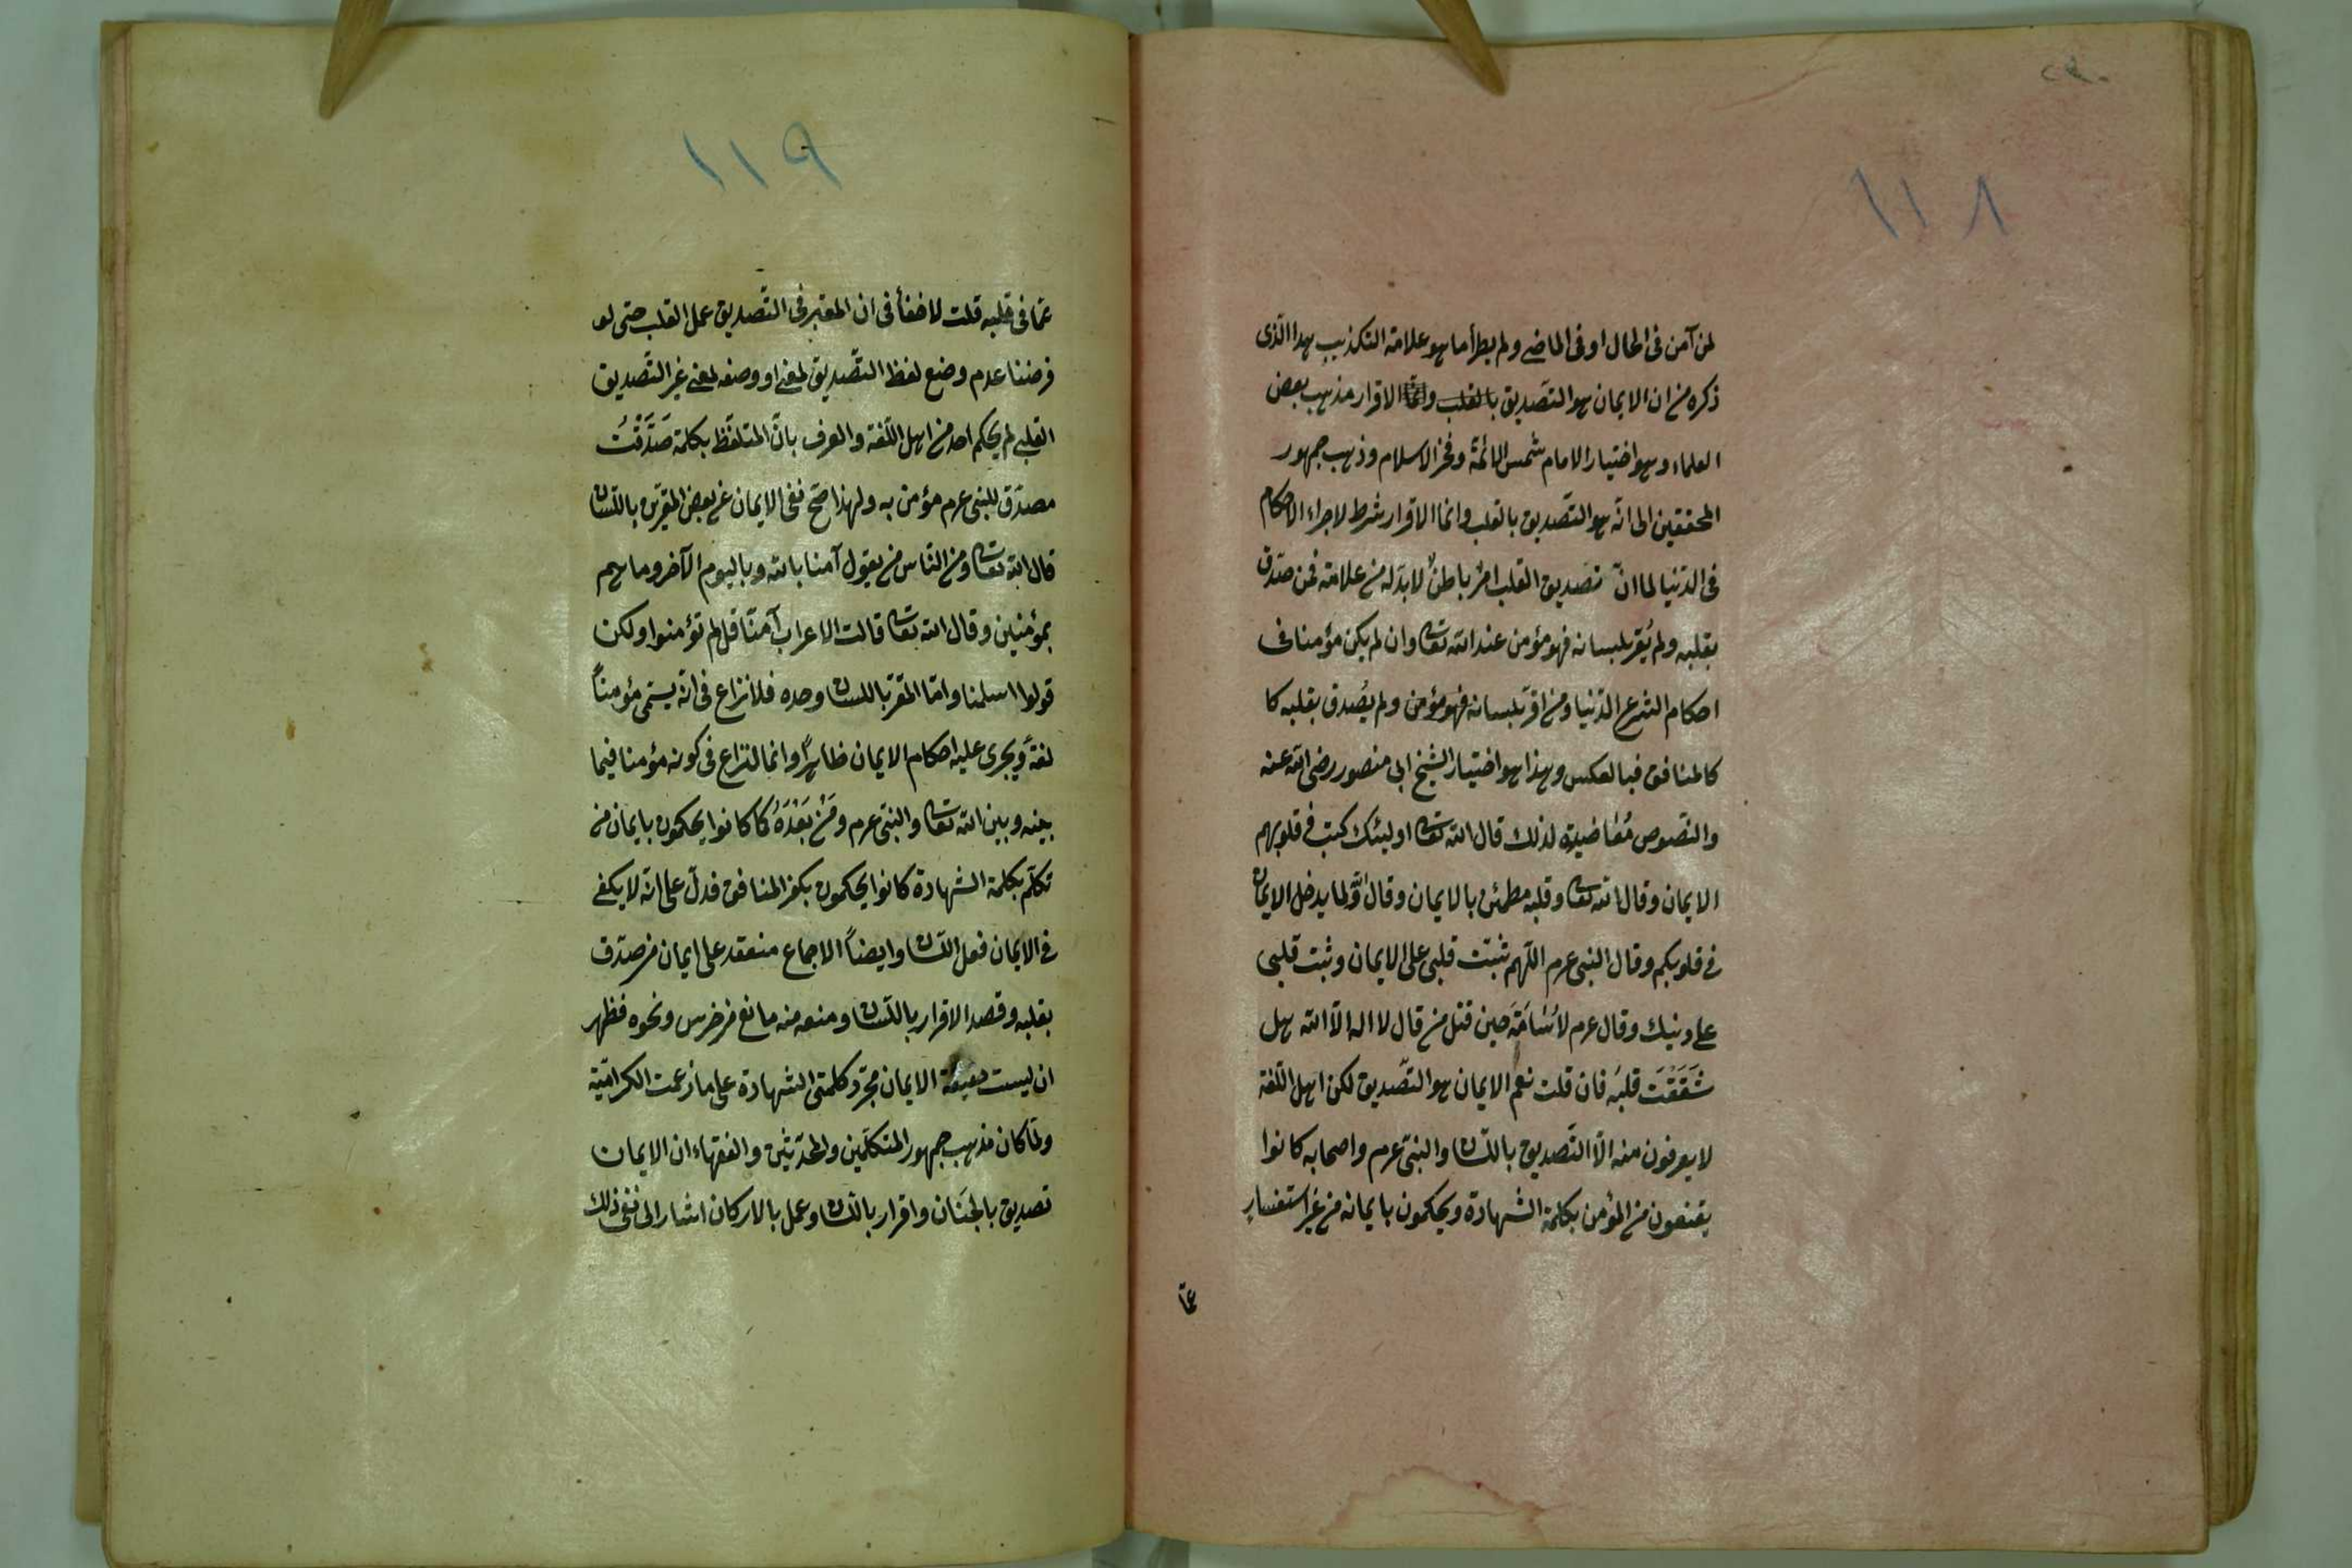 ١١٨
لمن آمن فى الحال او فى الماضى ولم يطرأ ما هو علامة التكذيب هذا الذى
ذكره من ان الايمان هو التصديق بالقلب وانما الاقرار مذهب بعض
العلماء وهو اختيار الامام شمس الائمة وفخر الاسلام وذهب جمهور
المحققين الى انّه هو التصديق بالقلب وانما الاقرار شرط لاجراء الاحكام
فى الدّنيا لما انّ تصديق القلب امرٌ باطنٌ لا بدّ له من علامة فمن صدّق
بقلبه ولم يُقر بلسانه فهو مؤمن عند الله تعا وان لم يكن مؤمنا فى
احكام الشرع الدّنيا ومن اقرّ بلسانه فهو مؤمن ولم يُصدق بقلبه كا
كالمنافق فبالعكس وهذا هو اختيار الشيخ ابى منصور رضى الله عنه
والنّصوص مُعَاضِدة لذلك قال الله تعا اولئك كتب فى قلوبهم
الايمان وقال الله تعا وقلبه مطمئن بالايمان وقال ولما يدخل الايمان
فى قلوبكم وقال النبى عرم اللّهم ثبّت قلبى على الايمان وثبت قلبى
على دينك وقال عرم لاُسَامَةَ حين قتل من قال لا اله الّا الله هل
شَقَقْتَ قلبَه فان قلت نعم الايمان هو التّصديق لكن اهل اللّغة
لا يعرفون منه الّا التّصديق باللّسان والنبىّ عرم واصحابه كانوا
يقنعون من المؤمن بكلمة الشهادة ويحكمون بايمانه من غير استفسارٍ
عمّا
١١٩
عمّا فى قلبه قلت لا خفأ فى ان المعتبر فى التّصديق عمل القلب حتى لو
فرضنا عدم وضع لفظ التّصديق لمعنى او وضعه لمعنى غير التّصديق
القلبى لم يحكم احد من اهل اللّغة والعرف بانّ المتلفّظ بكلمة صَدَّقْتُ
مصدّق للنبى عرم مؤمن به ولهذا صحّ نفى الايمان عن بعض المقرّين باللّسان
قال الله تعا ومن النّاس من يقول آمنا بالله وباليوم الآخر وما هم
بمؤمنين وقال الله تعا قالت الاعراب آمنّا قل لم تؤمنوا ولكن
قولوا اسلمنا وامّا المقرّ باللسان وحده فلا نزاع فى انّه يسمّى مؤمناً
لغةً ويجرى عليه احكام الايمان ظاهراً وانما النزاع فى كونه مؤمنا فيما
بينه وبين الله تعا والنبىّ عرم ومَنْ بَعْدَهُ كما كانوا يحكمون بايمان من
تكلّم بكلمة الشهادة كانوا يحكمون بكفر المنافق فدلّ على انّه لا يكفى
فى الايمان فعل اللّسان وايضاً الاجماع منعقد على ايمان من صدّق
بقلبه وقصد الاقرار باللّسان ومنعه منه مانع من خرس ونحوه فظهر
ان ليست حقيقة الايمان مجرّد كلمتى الشهادة على ما زعمت الكرامّية
ولمّا كان مذهب جمهور المتكلّمين والمحدّثين والفقهاء ان الايمان
تصديق بالجَنَان واقرار باللّسان وعمل بالاركان اشار الى نفى ذلك